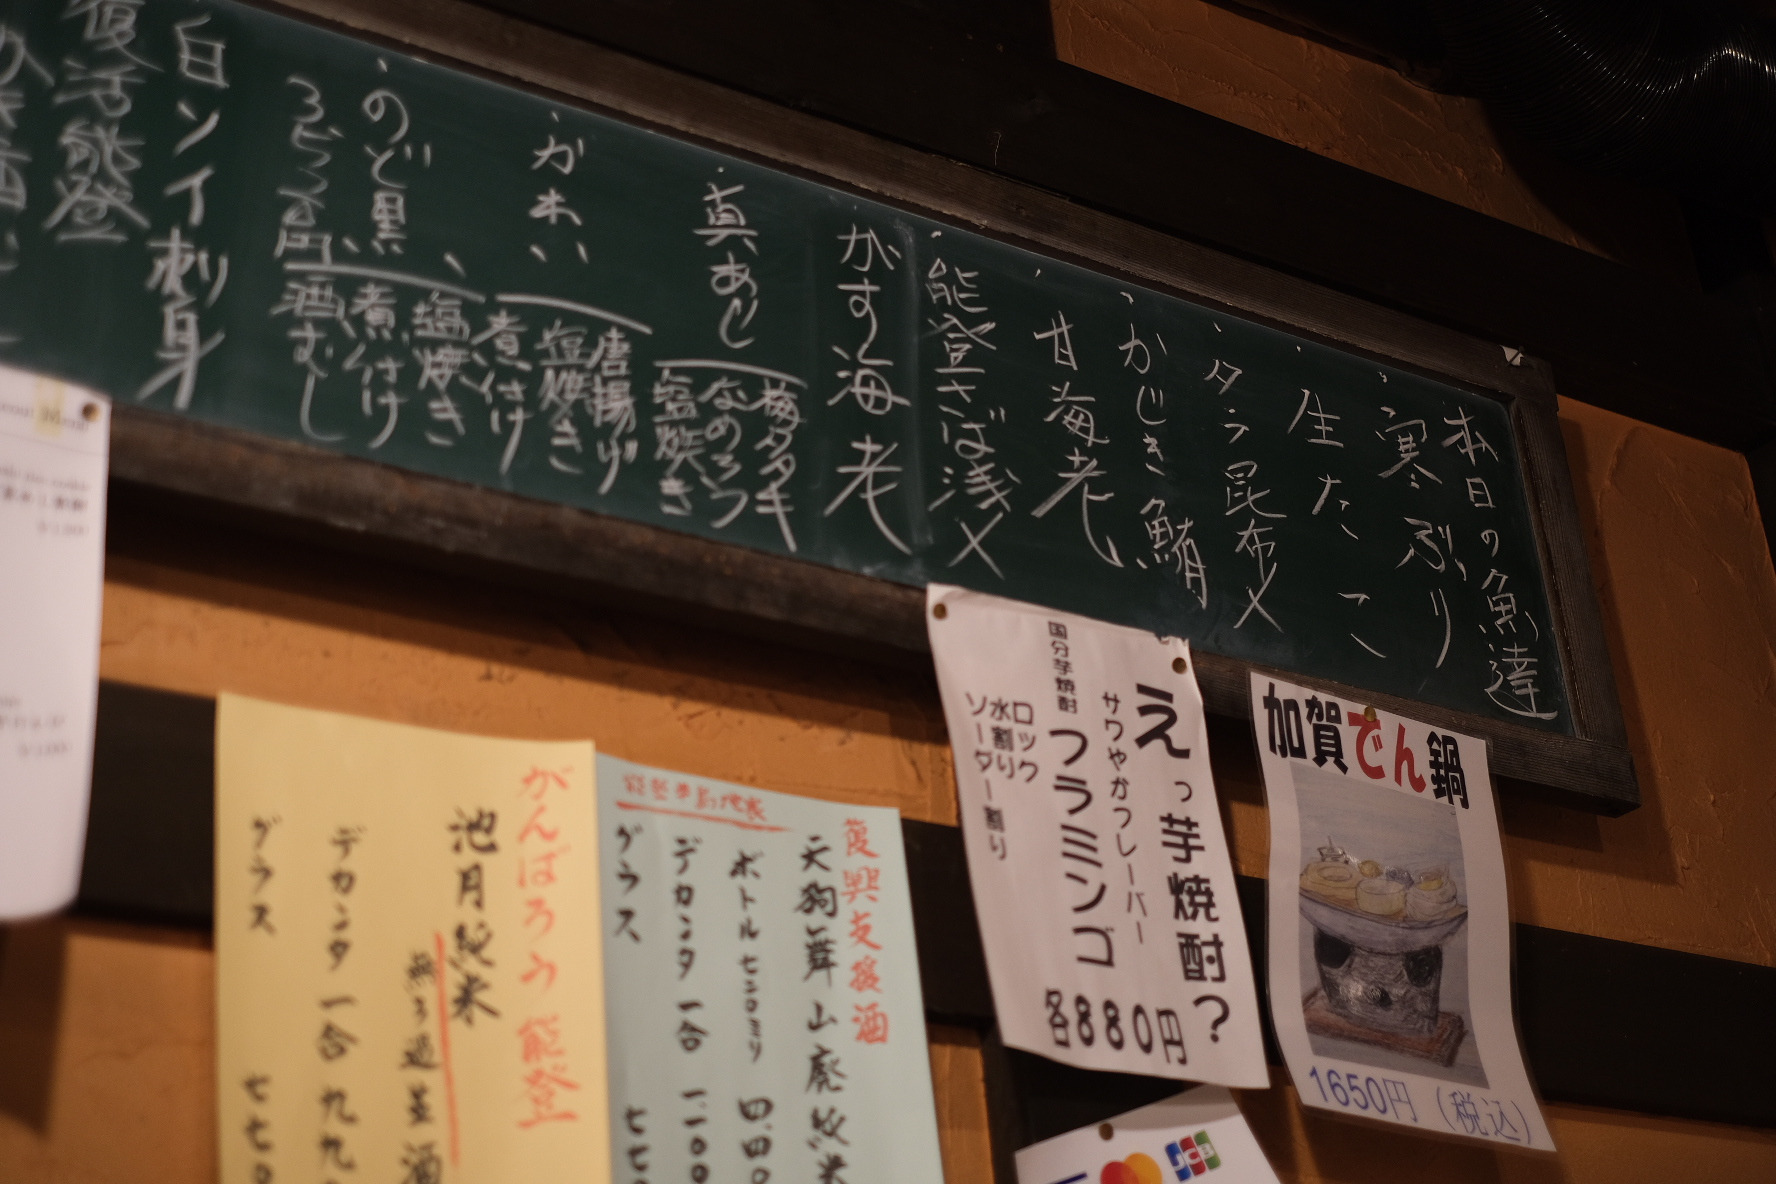 本日の魚達
・寒ぶり
・生たこ
・タラ昆布〆
・かじき鮪
・甘海老
・能登さば浅〆
がす海老
・真あじ
梅タタキ
なめろう
塩焼き
・かれい
唐揚げ
塩焼き
煮付け
・のど黒
塩焼き
煮付け
酒むし
白ソイ刺身
復活能登
えっ芋焼酎?
サワやかフレーバー
国分芋焼酎 フラミンゴ
ロック
水割り
ソーダー割り
各880円
加賀でん鍋
1650円(税込)
復興支援酒
天狗舞山廃純米
ボトル七二〇ミリ 四、四〇
デカンタ一合 一、一〇〇
グラス 七七
がんばろう能登
池月純米
無ろ過生酒
デカンタ一合 九九
グラス 七七〇
JCB